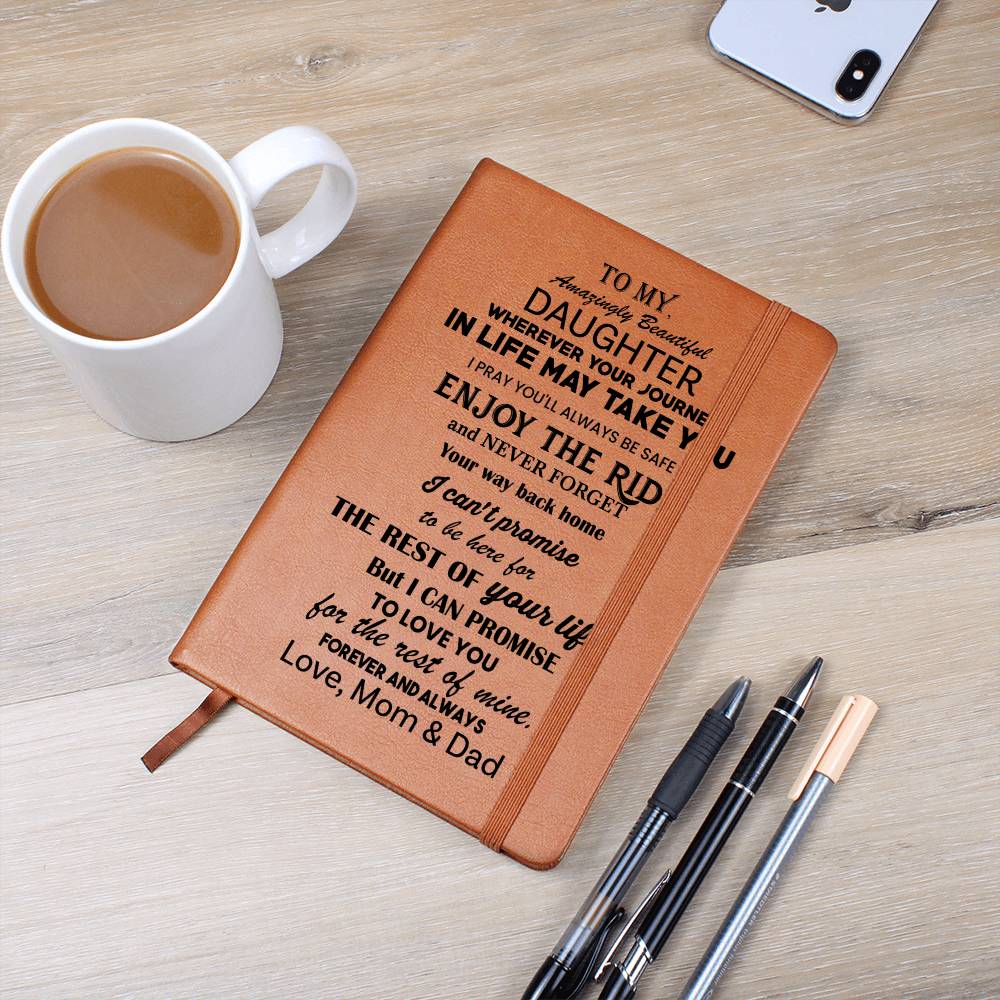 TO MY,
Amazingly Beautiful
DAUGHTER
WHEREVER YOUR JOURNE
IN LIFE MAY TAKE Y U
I PRAY YOU'LL ALWAYS BE SAFE
ENJOY THE RID
and NEVER FORGET
Your way back home
I can't promise
to be here for
THE REST OF your lif
But I CAN PROMISE
TO LOVE YOU
for the rest of mine.
FOREVER AND ALWAYS
Love, Mom & Dad